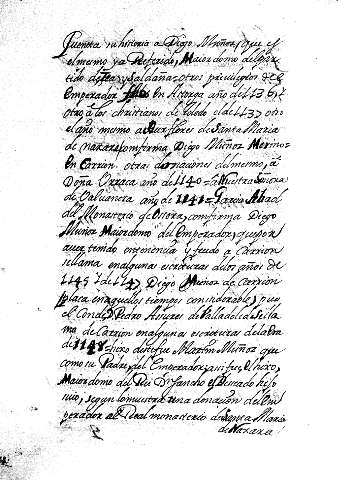 quenta su historia a Diego Muñoz, que es
el mesmo ya Referido, Maiordomo del par
tido de y Saldaña; otros privilegios de el
Emperador en Astorga año del 1136, y
otro a los christianos de Toledo el de 1137 otro
el año mesmo a de Santa Maria
de naxara, comfirma Diego Muñoz Merino
en Carrion. otras donaciones del mesmo, a
Doña Urraca año de 1140 = a Nuestra Señora
de Valvanera año de 1141 = Garcia Abad
del Monasterio de comfirma Diego
Muñoz Maiordomo del Emperador, que por
aver tenido en tenencia y feudo a Carrion
se llama en algunas escrituras de los años de
1145 y de 1147 Diego Muñoz de Carrion
plaza en aquellos tiempos considerable, pues
el Conde D Pedro de Valladolid se lla
mo de Carrion en alguna escritura de la Era
de 1148 = hijo deste fue Martin Muñoz que
como su Padre, del Emperador, assi fue el hijo,
Maiordomo del Rei Dn Sancho el Deseado hijo
suio, segun lo muestra una donacion del Em
perador al Real monasterio de Santa Maria
de Naxara